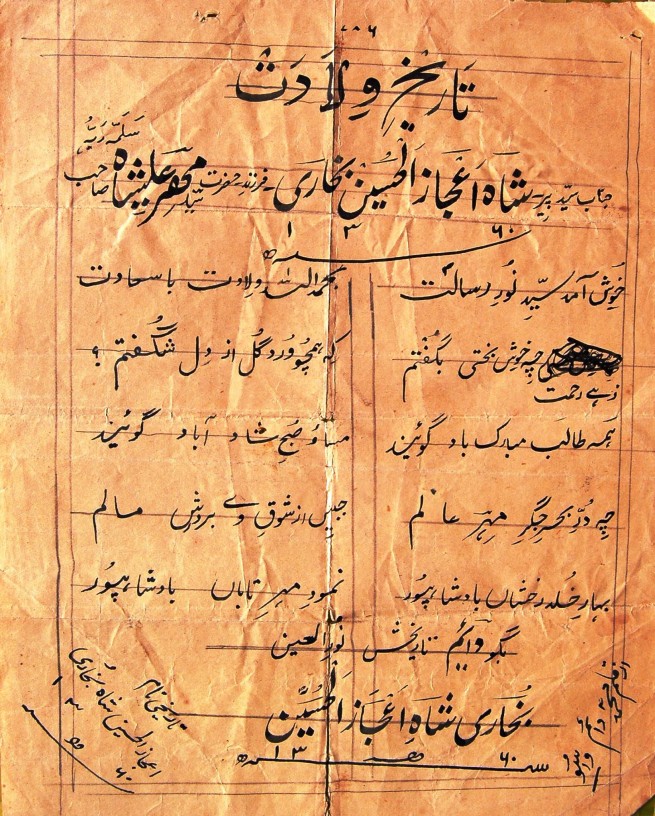 ۷۸۶
تاریخِ ولادت
جناب سید پیر شاہ اعجاز الحسین بخاری فرزند حضرت سید محضر علیشاہ صاحب سلمہ ربہ
۱۳۶۰ سنہ ھ
خوش آمد سیّدِ نورِ رسالت بحمد اللہ ولادت با سعادت
زہے رحمت چہ خوش بختی بگفتم کہ ہمچو ورد گل از دل شگفتم ؟
ہمہ طالب مبارک باد گوئیند مساؤ صبح شاد آباد گوئیند
چہ دُرِّ بحر جگر مہرِ عالم جبیں از شوق وے بروش مالم
بہارِ خلد رخشاں بادشاہپور نمود مہرِ تاباں بادشاہپور
بگو دائم تاریخش نور العین
بخاری شاہ اعجاز الحسین
۱۳۶۰ سنہ ھ
تاریخی نام
اعجاز الحسین شاہ بخاری
۱۳۶۰ ھ
از قلم محمد
دائم